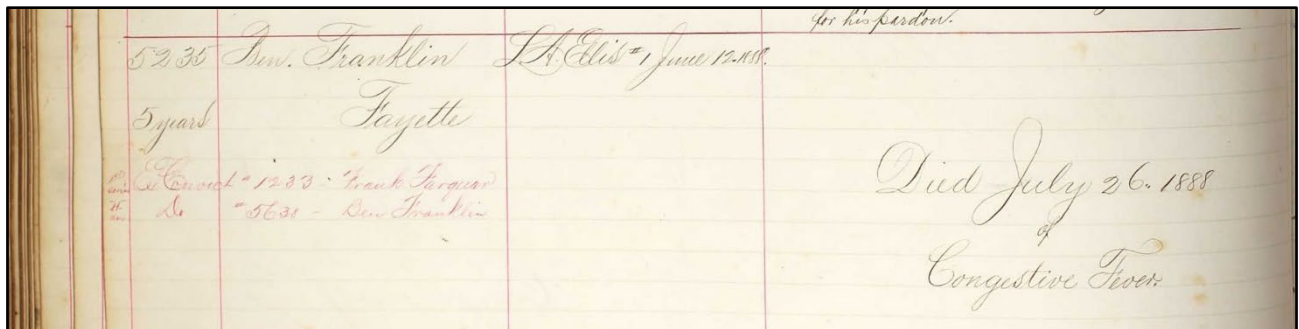 for his pardon.
5235 Ben. Franklin L.A. Ellis #1 June 12. 1888.
5 years Fayette
Ex Convict # 1233 - Frank Farquar
Do # 5630 - Ben Franklin
Died July 26. 1888
of
Congestive Fever.